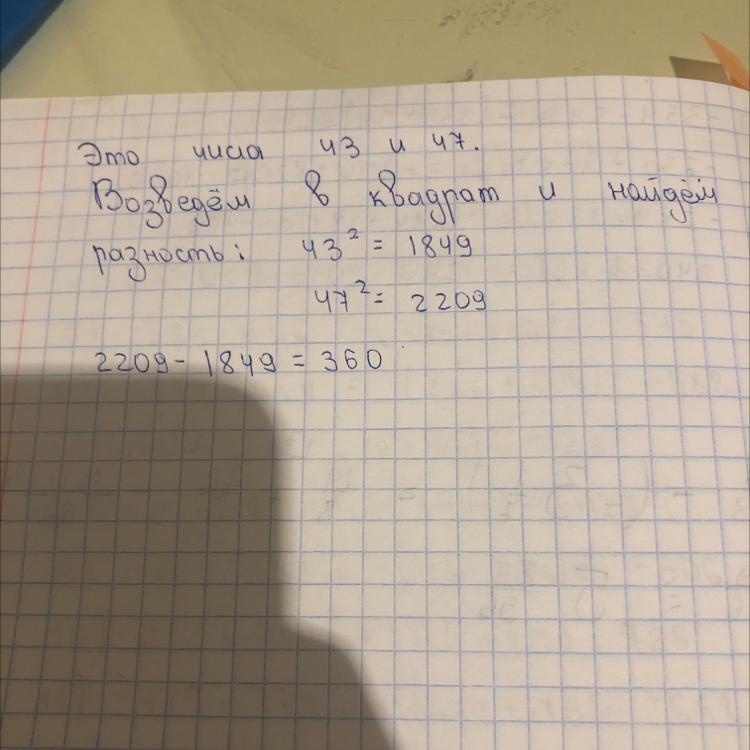 Это числа 43 и 47.
Возведём в квадрат и найдём
разность: 43² = 1849
47² = 2209
2209 - 1849 = 360